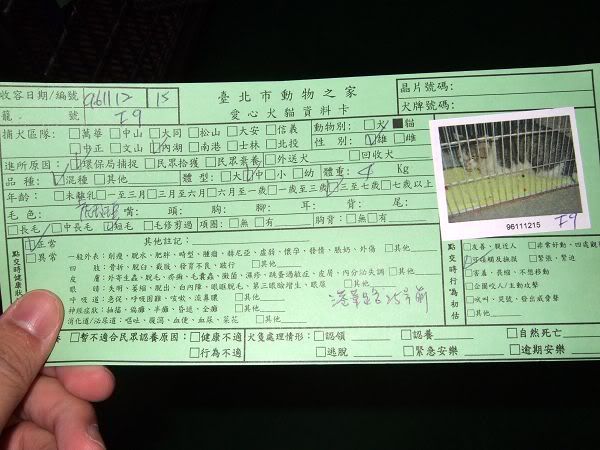 收容日期/編號 961112 15
臺北市動物之家
愛心犬貓資料卡
晶片號碼:
犬牌號碼:
籠 號 I9
捕犬區隊: □萬華 □中山 □大同 □松山 □大安 □信義 動物別: □犬 ■貓
□中正 □文山 □內湖 □南港 □士林 □北投 性 別: □雄 □雌
進所原因: □環保局捕捉 □民眾拾獲 □民眾棄養 □外送犬 □回收犬
品 種: □混種 □其他 體 型: □大 □中 □小 □幼 體重: 4 Kg
年齡: □未離乳 □一至三月 □三至六月 □六月至一歲 □一歲至三歲 □三至七歲 □七歲以上
毛 色: 嘴: 頭: 胸: 腳: 耳: 背: 尾:
□長毛 □中長毛 □短毛 □毛修剪過 項圈: □無 □有 胸背: □無 □有
96111215 I9
點交時健康狀
□正常
□異常
其他註記:
一般外表: 削瘦、脫水、肥胖、畸型、腫瘤、赫尼亞、虛弱、懷孕、發情、脹奶、外傷 □其他
四 肢: 骨折、脫臼、截肢、發育不良、跛行 □其他
皮 膚: 外寄生蟲、脫毛、疥癬、毛囊蟲、黴菌、濕疹、跳蚤過敏症、皮膚、內分泌失調 □其他
眼 睛: 失明、萎縮、脫出、白內障、眼瞼內外翻、第三眼瞼增生、眼屎 □其他
呼 吸 道: 急促、呼吸困難、咳嗽、流鼻膿 □其他
神經症狀: 抽搐、癲癇、半癱、昏迷、全癱 □其他
消化道/泌尿道: 嘔吐、腹瀉、血便、血尿、菜花 □其他
點交時行為初估
□友善、親近人 □非常好動、四處觀
□可接觸及撫摸 □緊張、緊迫
□害羞、長縮、不想移動
□企圖咬人/主動攻擊
□吠叫、哭號、發出威脅聲
□其他
□暫不適合民眾認養原因: □健康不適
□行為不適
犬隻處理情形: □認領 □認養 □自然死亡
□逃脫 □緊急安樂 □逾期安樂